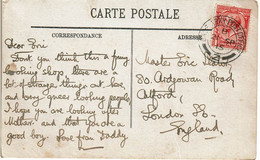 CARTE POSTALE
CORRESPONDANCE
ADRESSE
Dear Eric
Don't you think this a funny
looking shop, there are a
lot of strange things out here,
and very queer looking people,
I hope you are looking after
Mother and that you are a
good boy. Love from Daddy
Master Eric
80. Ardgowan Road
Catford,
London S.E.
England.